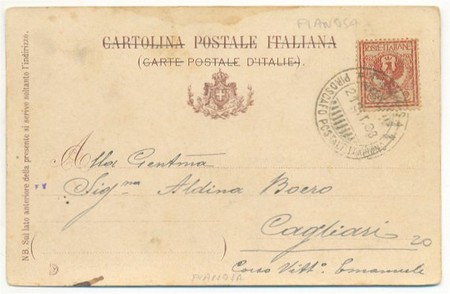 PIANOSA
CARTOLINA POSTALE ITALIANA
(CARTE POSTALE D'ITALIE).
POSTE ITALIANE
PIROSCAFO POSTALE ITALIANO
Alla Gentma
Sigma Aldina Boero
Cagliari
20
Corso Vitto. Emanuele
PIANOSA
NB. Sul lato anteriore della presente si scrive soltanto l'indirizzo.